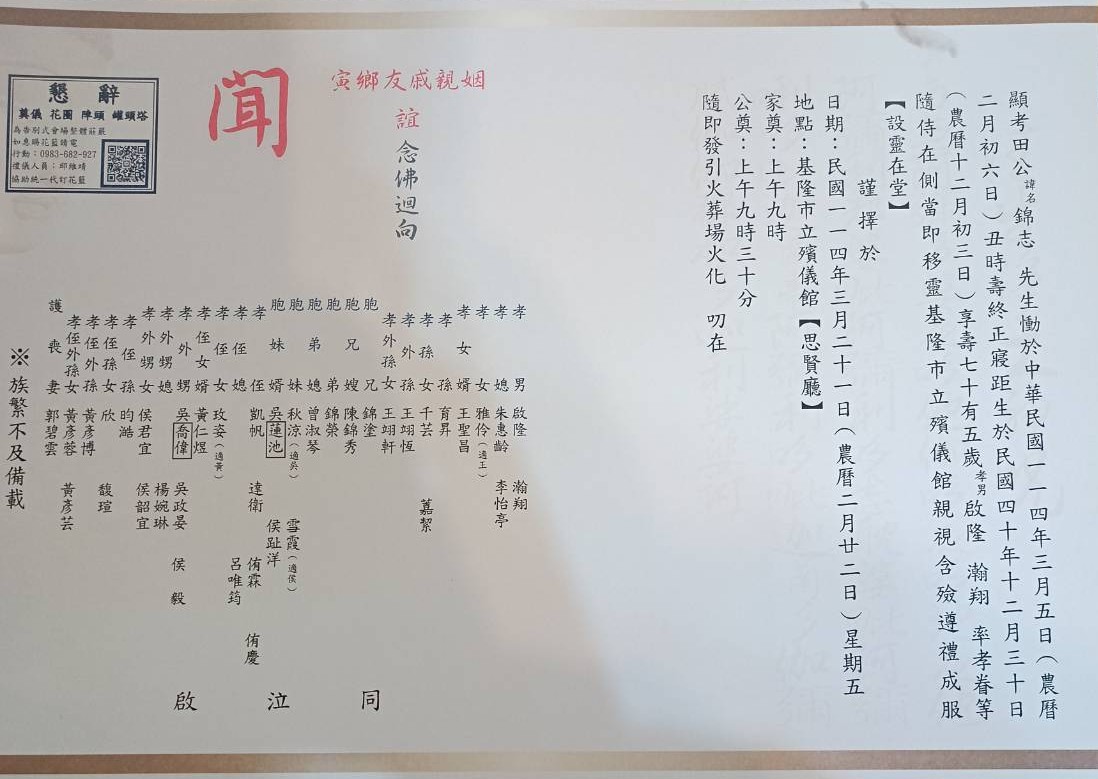 顯考田公諱名錦志 先生慟於中華民國一一四年三月五日（農曆
二月初六日）丑時壽終正寢距生於民國四十年十二月三十日
（農曆十二月初三日）享壽七十有五歲孝男啟隆 瀚翔 率孝眷等
隨侍在側當即移靈基隆市立殯儀館親視含殮遵禮成服
【設靈在堂】
謹擇於
日期：民國一一四年三月二十一日（農曆二月廿二日）星期五
地點：基隆市立殯儀館【思賢廳】
家奠：上午九時
公奠：上午九時三十分
隨即發引火葬場火化 叨在
姻親戚友鄉寅
誼 念佛迴向
聞
孝男 啟隆 瀚翔
孝媳 朱惠齡 李怡亭
孝女 雅伶（適王）
孝女婿 王聖昌
孝孫 育昇
孝孫女 千芸 嘉絜
孝外孫 王翊恆
孝外孫女 王翊軒
胞兄 錦塗
胞兄嫂 陳錦秀
胞弟 錦榮
胞弟媳 曾淑琴
胞妹 秋涼（適吳） 雪霞（適侯）
胞妹婿 吳蓮池 侯趾洋
孝侄 凱帆 達衛 侑霖 侑慶
孝侄媳 呂唯筠
孝侄女 玫姿（適黃）
孝侄女婿 黃仁煜
孝外甥 吳喬偉 吳政晏 侯毅
孝外甥媳 楊婉琳
孝外甥女 侯君宜 侯韶宜
孝侄孫 昀澔
孝侄孫女 欣 馥瑄
孝侄外孫 黃彥博
孝侄外孫女 黃彥蓉 黃彥芸
護喪妻 郭碧雲
同泣啟
※族繁不及備載
懇辭
奠儀 花圈 陣頭 罐頭塔
為告別式會場整體莊嚴
如意賜花籃請電
行動：0983-682-927
禮儀人員：邱維靖
協助統一代訂花籃